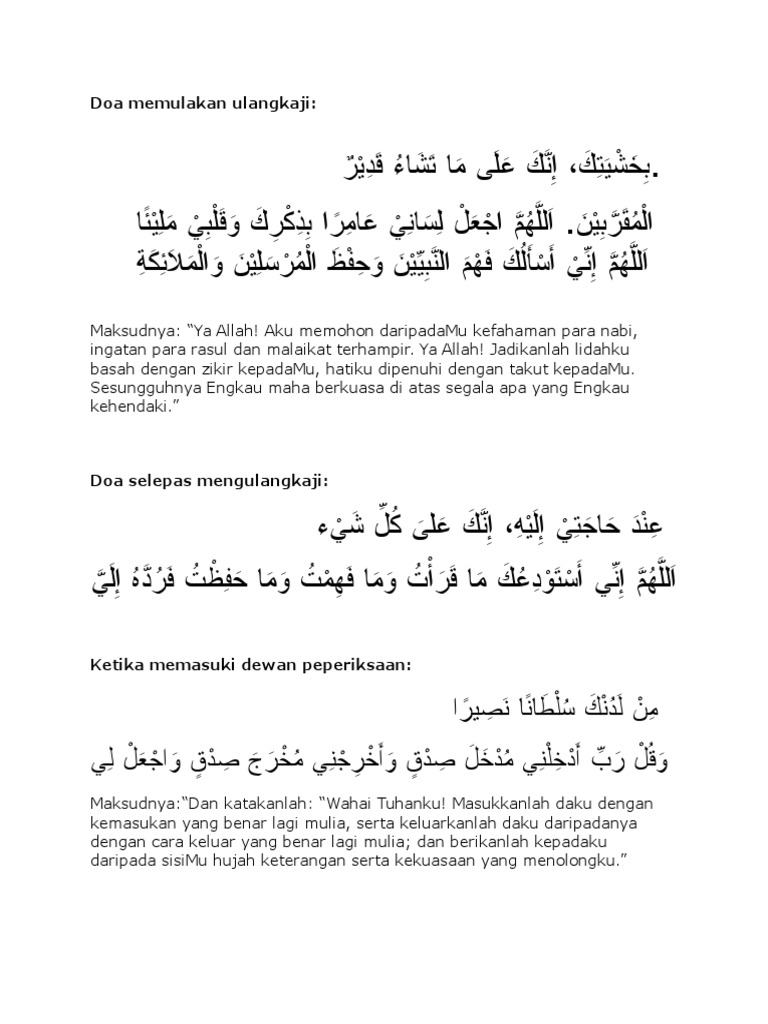 Doa memulakan ulangkaji:
بِخَشْيَتِكَ، إِنَّكَ عَلَى مَا تَشَاءُ قَدِيْرٌ.
الْمُقَرَّبِيْنَ. اَللَّهُمَّ اجْعَلْ لِسَانِيْ عَامِرًا بِذِكْرِكَ وَقَلْبِيْ مَلِيْئًا
اَللَّهُمَّ إِنِّيْ أَسْأَلُكَ فَهْمَ النَّبِيِّيْنَ وَحِفْظَ الْمُرْسَلِيْنَ وَالْمَلاَئِكَةِ
Maksudnya: “Ya Allah! Aku memohon daripadaMu kefahaman para nabi,
ingatan para rasul dan malaikat terhampir. Ya Allah! Jadikanlah lidahku
basah dengan zikir kepadaMu, hatiku dipenuhi dengan takut kepadaMu.
Sesungguhnya Engkau maha berkuasa di atas segala apa yang Engkau
kehendaki.”
Doa selepas mengulangkaji:
عِنْدَ حَاجَتِيْ إِلَيْهِ، إِنَّكَ عَلىَ كُلِّ شَيْء
اَللَّهُمَّ إِنِّي أَسْتَوْدِعُكَ مَا قَرَأْتُ وَمَا فَهِمْتُ وَمَا حَفِظْتُ فَرُدَّهُ إِلَيَّ
Ketika memasuki dewan peperiksaan:
مِنْ لَدُنْكَ سُلْطَانًا نَصِيرًا
وَقُلْ رَبِّ أَدْخِلْنِي مُدْخَلَ صِدْقٍ وَأَخْرِجْنِي مُخْرَجَ صِدْقٍ وَاجْعَلْ لِي
Maksudnya:“Dan katakanlah: “Wahai Tuhanku! Masukkanlah daku dengan
kemasukan yang benar lagi mulia, serta keluarkanlah daku daripadanya
dengan cara keluar yang benar lagi mulia; dan berikanlah kepadaku
daripada sisiMu hujah keterangan serta kekuasaan yang menolongku.”